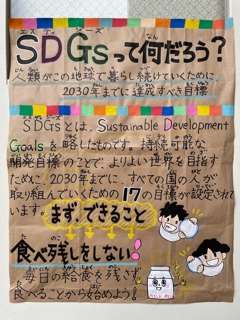 エスディージーズ
SDGsって何だろう？
人類がこの地球で暮らし続けていくために、
2030年までに達成すべき目標
SDGsとは、Sustainable Development
Goalsを略したものです。持続可能な
開発目標のことで、よりよい世界を目指す
ために、2030年までに、すべての国の人が
取り組んでいくための17の目標が設定されて
います。
まず、できること
食べ残しをしない！
毎日の給食を残さず
食べることから始めよう！